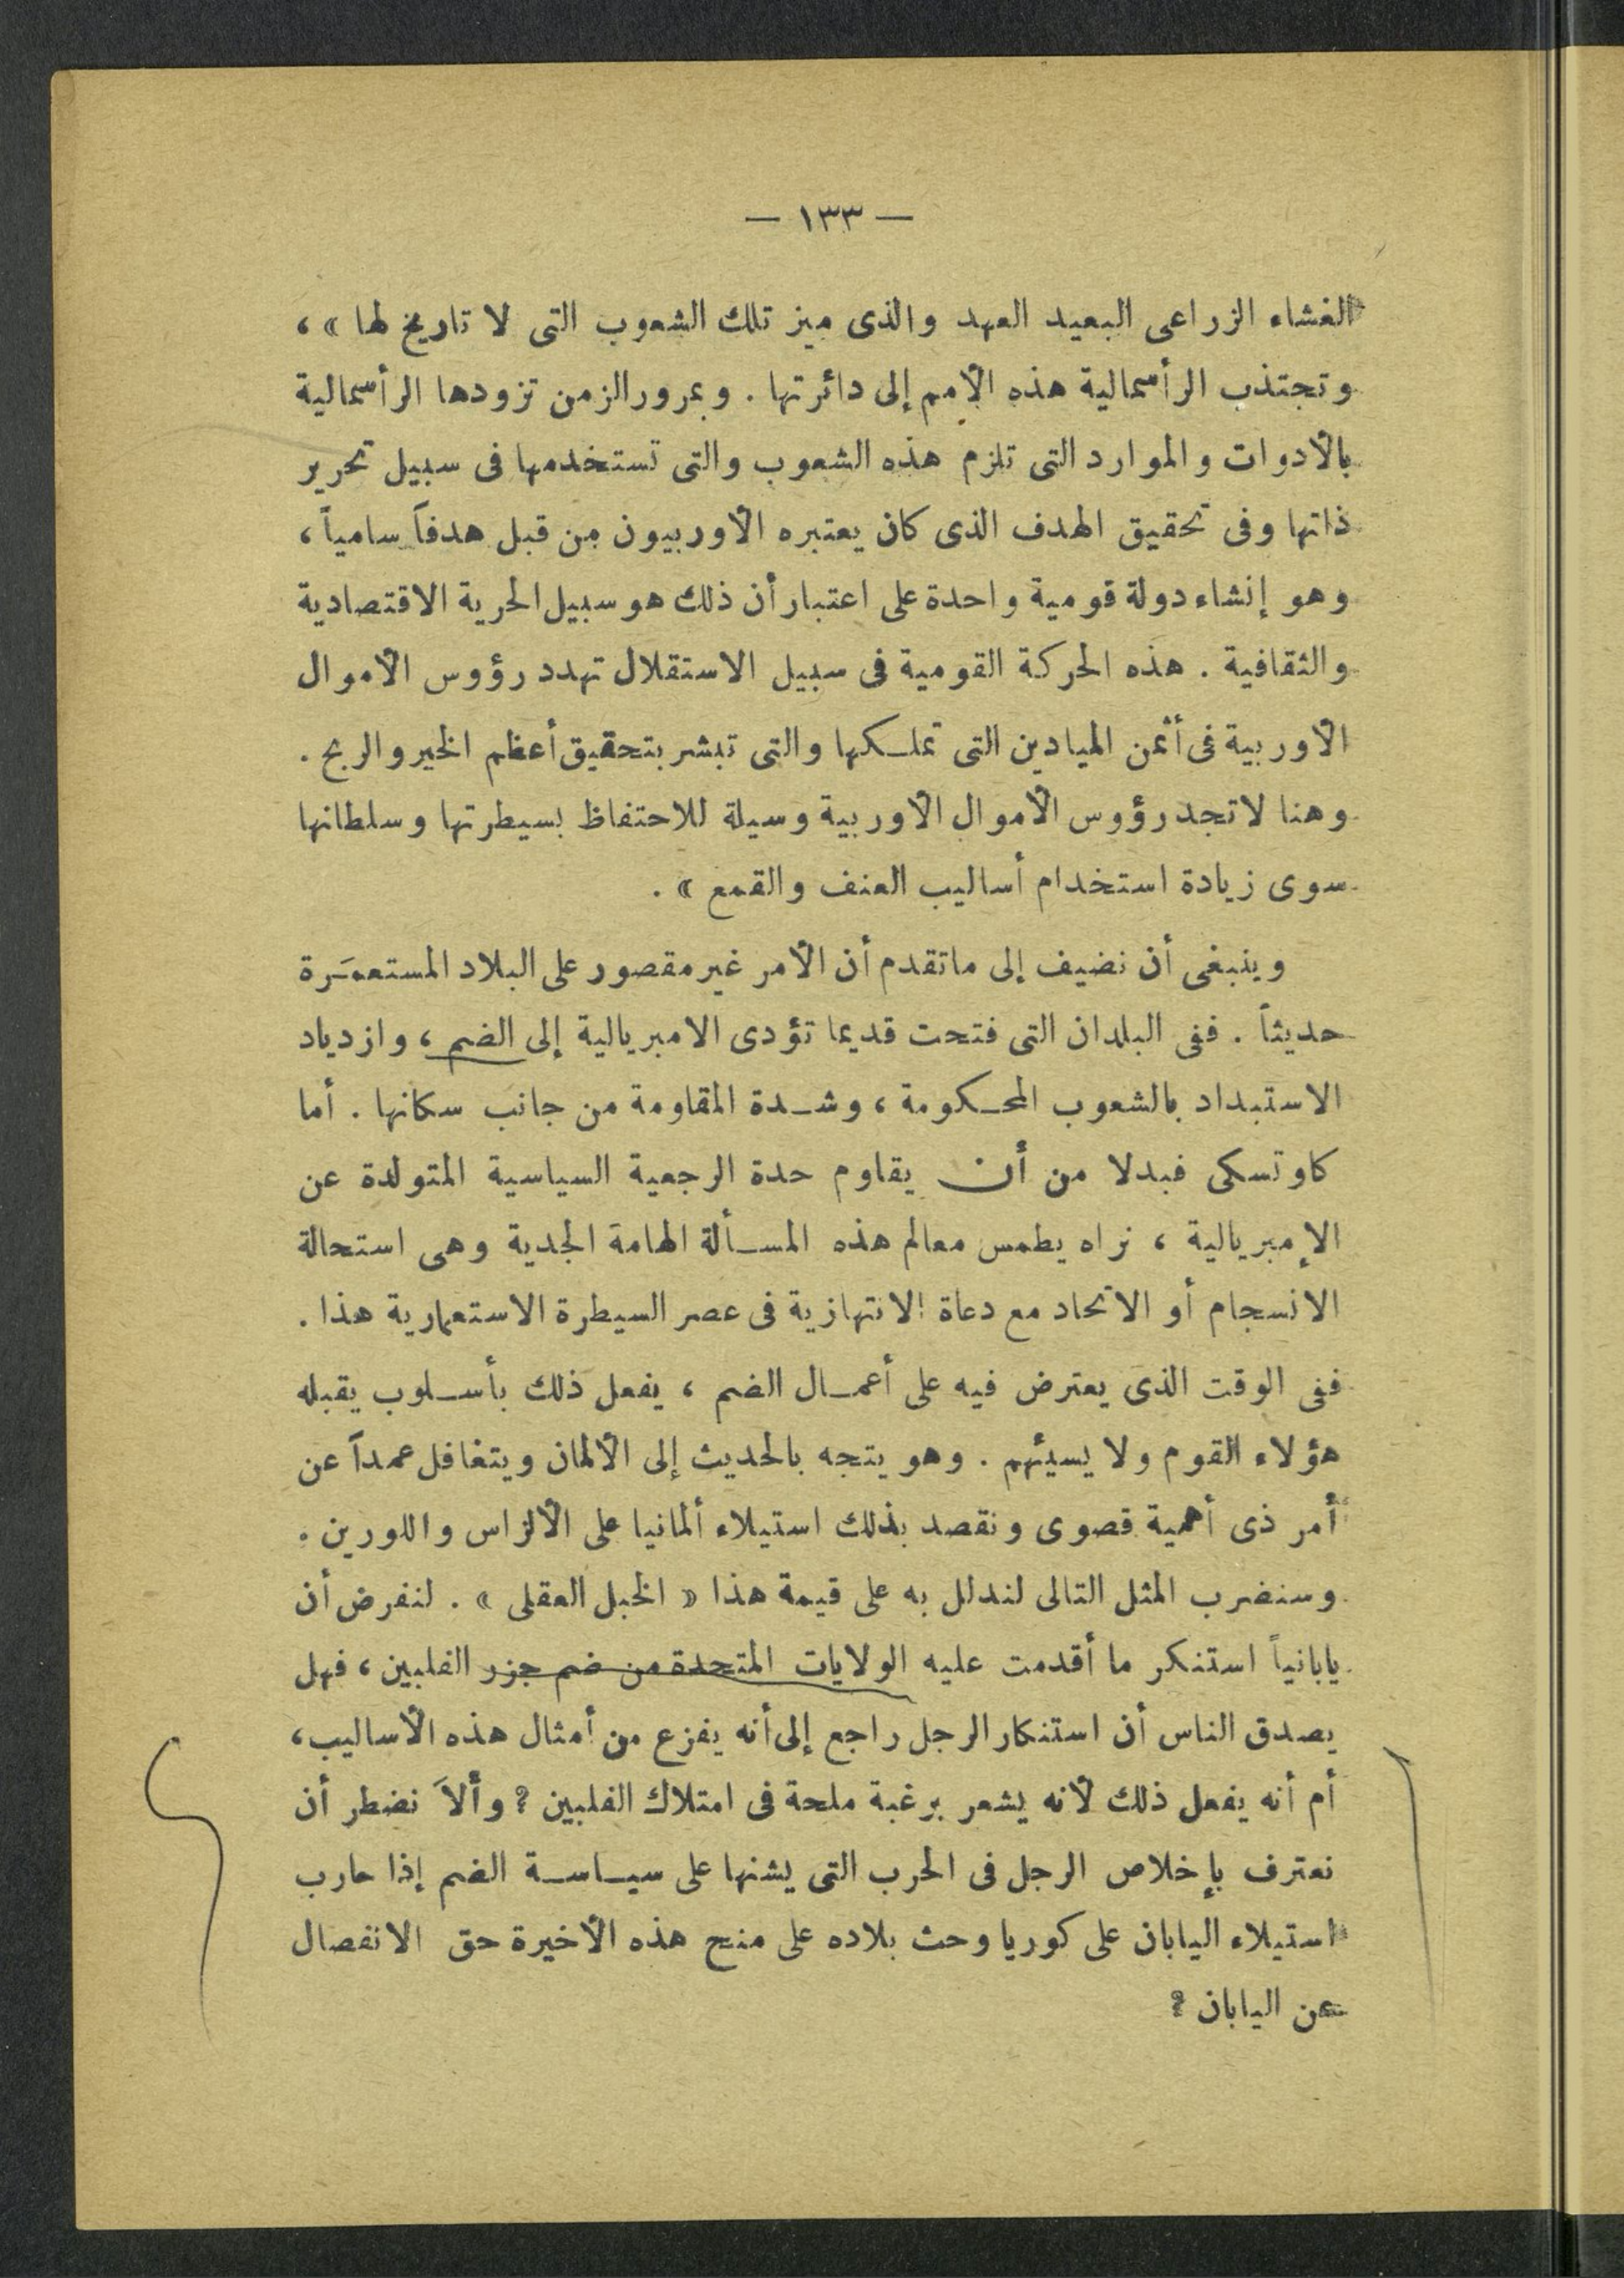 — ١٣٣ —
الغشاء الزراعى البعيد العهد والذى ميز تلك الشعوب التى لا تاريخ لها » ،
وتجتذب الرأسمالية هذه الأمم إلى دائرتها . وبمرور الزمن تزودها الرأسمالية
بالأدوات والموارد التى تلزم هذه الشعوب والتى تستخدمها فى سبيل تحرير
ذاتها وفى تحقيق الهدف الذى كان يعتبره الأوربيون من قبل هدفاً سامياً ،
وهو إنشاء دولة قومية واحدة على اعتبار أن ذلك هو سبيل الحرية الاقتصادية
والثقافية . هذه الحركة القومية فى سبيل الاستقلال تهدد رؤوس الأموال
الأوربية فى أثمن الميادين التى تملكها والتى تبشر بتحقيق أعظم الخير والربح .
وهنا لا تجد رؤوس الأموال الأوربية وسيلة للاحتفاظ بسيطرتها وسلطانها
سوى زيادة استخدام أساليب العنف والقمع » .
وينبغى أن نضيف إلى ماتقدم أن الأمر غير مقصور على البلاد المستعمَرة
حديثاً . ففى البلدان التى فتحت قديما تؤدى الامبريالية إلى الضم ، وازدياد
الاستبداد بالشعوب المحكومة ، وشدة المقاومة من جانب سكانها . أما
كاوتسكى فبدلا من أن يقاوم حدة الرجعية السياسية المتولدة عن
الإمبريالية ، نراه يطمس معالم هذه المسألة الهامة الجدية وهى استحالة
الانسجام أو الاتحاد مع دعاة الانتهازية فى عصر السيطرة الاستعمارية هذا .
ففى الوقت الذى يعترض فيه على أعمال الضم ، يفعل ذلك بأسلوب يقبله
هؤلاء القوم ولا يسيئهم . وهو يتجه بالحديث إلى الألمان ويتغافل عمداً عن
أمر ذى أهمية قصوى ونقصد بذلك استيلاء ألمانيا على الألزاس واللورين .
وسنضرب المثل التالى لندلل به على قيمة هذا « الخبل العقلى » . لنفرض أن
يابانياً استنكر ما أقدمت عليه الولايات المتحدة من ضم جزر الفلبين ، فهل
يصدق الناس أن استنكار الرجل راجع إلى أنه يفزع من أمثال هذه الأساليب ،
أم أنه يفعل ذلك لأنه يشعر برغبة ملحة فى امتلاك الفلبين ؟ وألاَ نضطر أن
نعترف بإخلاص الرجل فى الحرب التى يشنها على سياسة الضم إذا حارب
استيلاء اليابان على كوريا وحث بلاده على منح هذه الأخيرة حق الانفصال
عن اليابان ؟